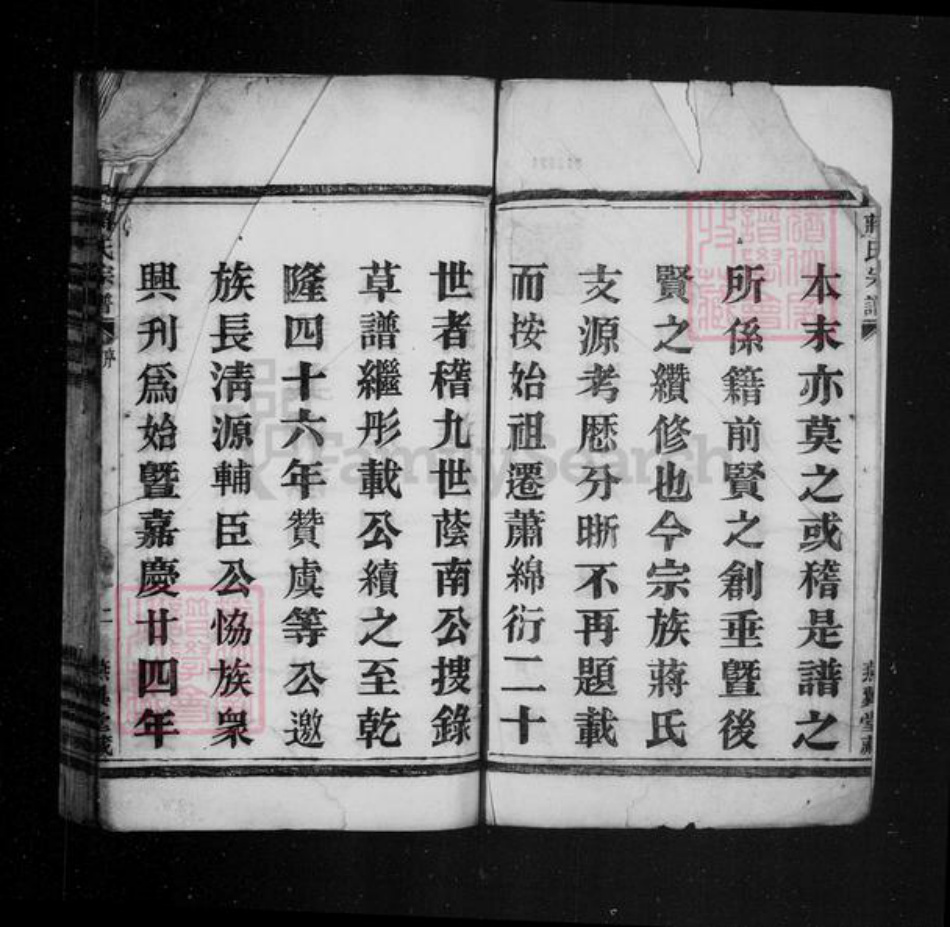 蔣氏宗譜
燕翼堂藏
本末亦莫之或稽是譜之
所係籍前賢之創垂暨後
賢之纘修也今宗族蔣氏
支源考歷分晰不再題載
而按始祖遷蕭綿衍二十
世者稽九世蔭南公搜錄
草譜繼彤載公續之至乾
隆四十六年贊虞等公邀
族長淸源輔臣公恊族衆
興刋爲始暨嘉慶廿四年
氏宗譜
序
二
燕翼堂藏
FamilySearch